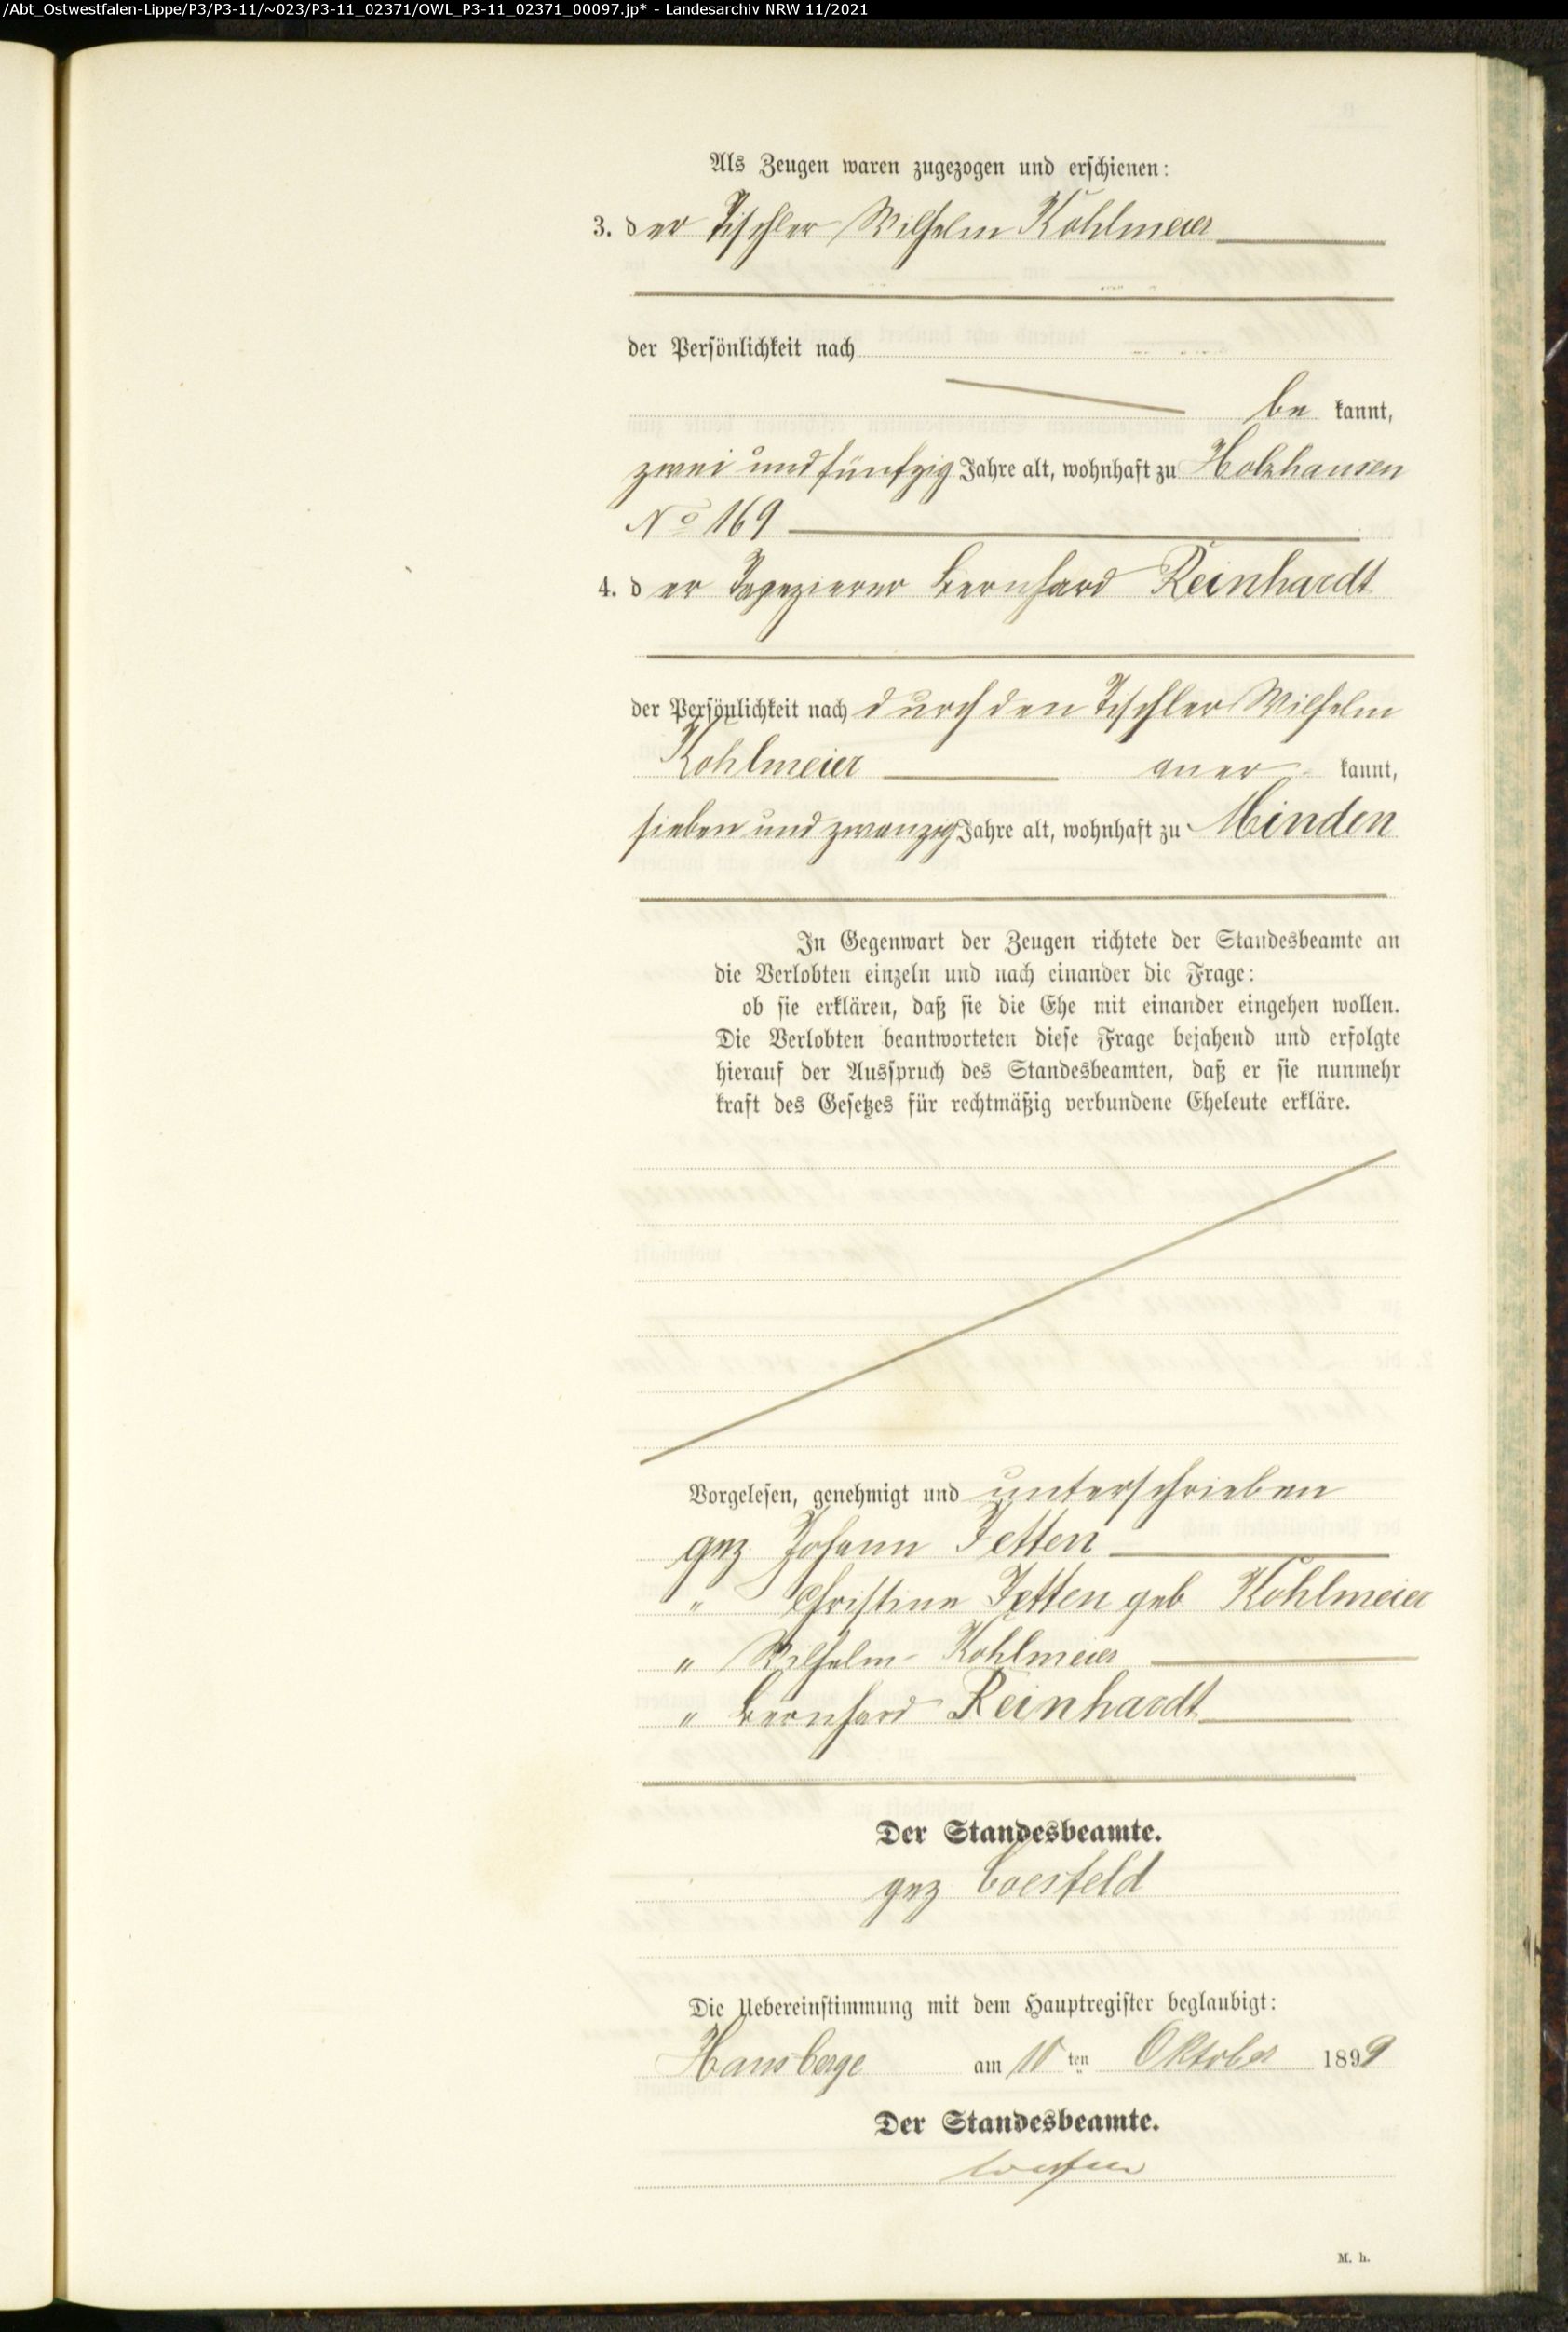 /Abt_Ostwestfalen-Lippe/P3/P3-11/~023/P3-11_02371/OWL_P3-11_02371_00097.jp* - Landesarchiv NRW 11/2021
Als Zeugen waren zugezogen und erschienen:
3. der Tischler Wilhelm Kohlmeier
der Persönlichkeit nach
be kannt,
zwei und fünfzig Jahre alt, wohnhaft zu Holzhausen
No 169
4. der Tapezierer Bernhard Reinhardt
der Persönlichkeit nach durch den Tischler Wilhelm
Kohlmeier aner kannt,
sieben und zwanzig Jahre alt, wohnhaft zu Minden
In Gegenwart der Zeugen richtete der Standesbeamte an
die Verlobten einzeln und nach einander die Frage:
ob sie erklären, daß sie die Ehe mit einander eingehen wollen.
Die Verlobten beantworteten diese Frage bejahend und erfolgte
hierauf der Ausspruch des Standesbeamten, daß er sie nunmehr
kraft des Gesetzes für rechtmäßig verbundene Eheleute erkläre.
Vorgelesen, genehmigt und unterschrieben
gez Johann Tetten
" Christine Tetten geb Kohlmeier
" Wilhelm Kohlmeier
" Bernhard Reinhardt
Der Standesbeamte.
gez Coesfeld
Die Uebereinstimmung mit dem Hauptregister beglaubigt:
Hausberge am ten Oktober 1899
Der Standesbeamte.
Coesfeld
M. h.